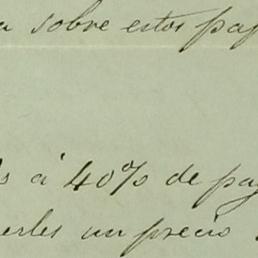 sobre estos pap
à 40% de pag
un precio